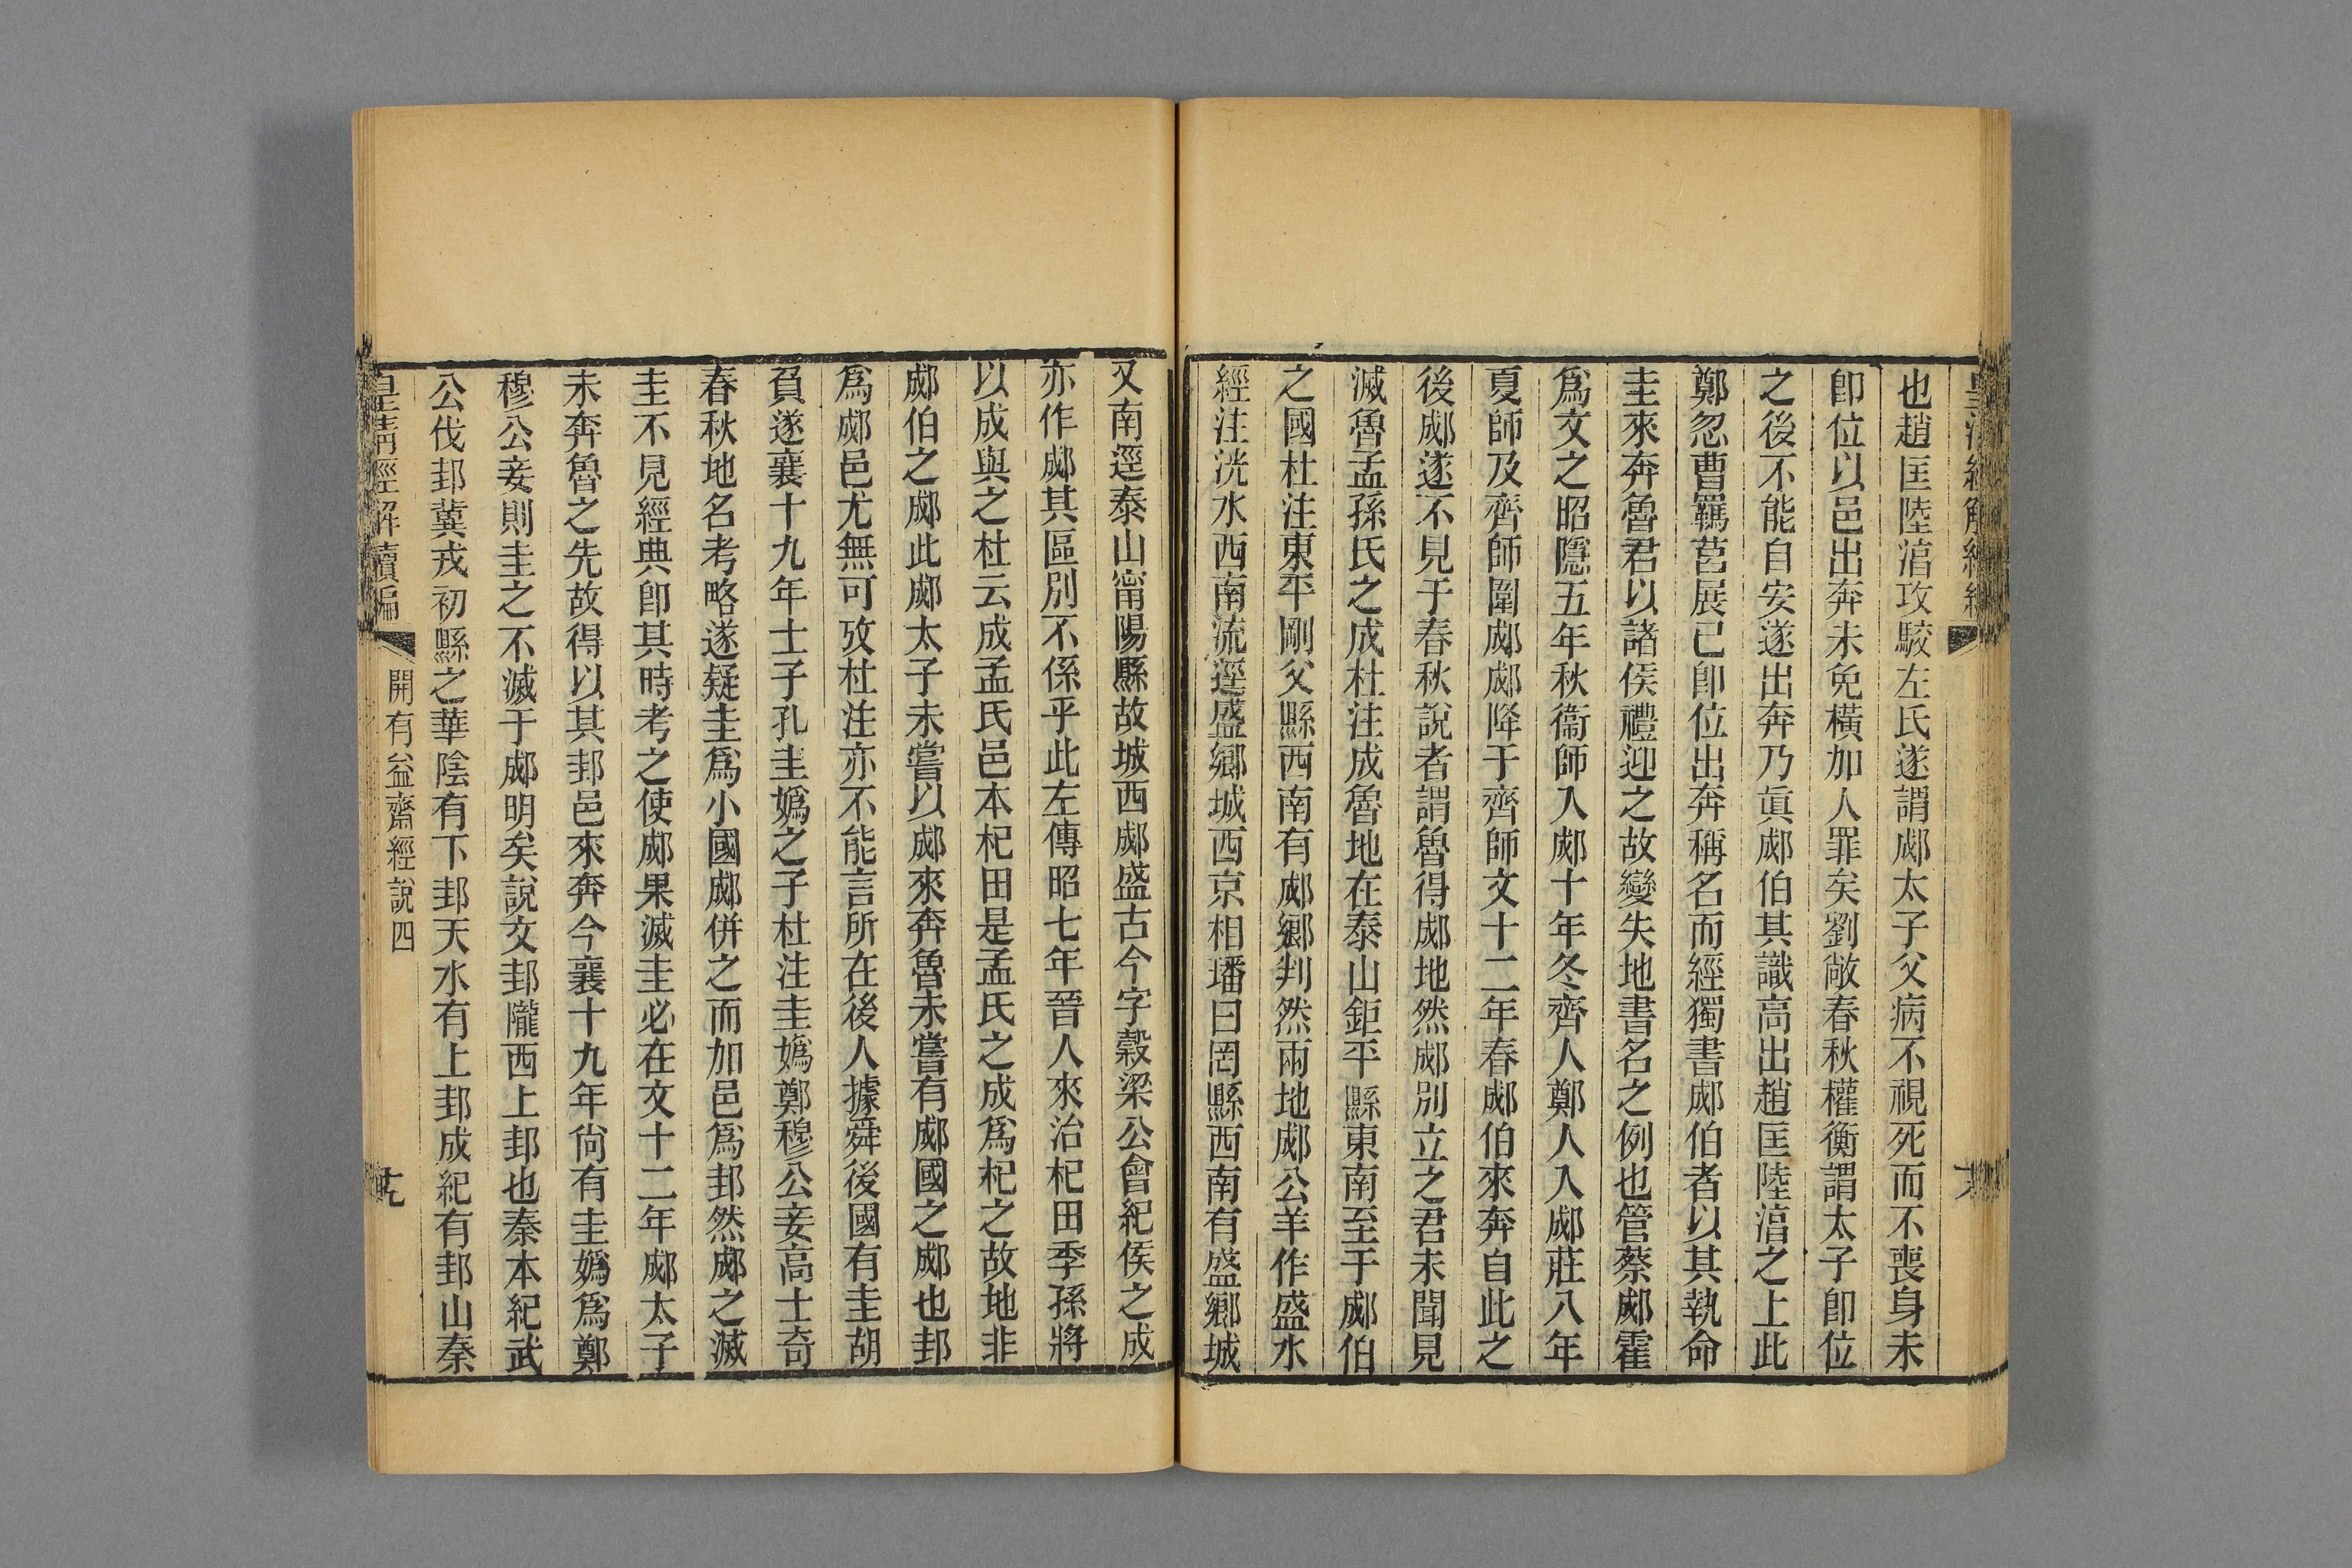 也趙匡陸湻攻駮左氏遂謂郕太子父病不視死而不喪身未
卽位以邑出奔未免橫加人罪矣劉敞春秋權衡謂太子卽位
之後不能自安遂出奔乃眞郕伯其識高出趙匡陸湻之上此
鄭忽曹羈莒展已卽位出奔稱名而經獨書郕伯者以其執命
圭來奔魯君以諸侯禮迎之故變失地書名之例也管蔡郕霍
爲文之昭隱五年秋衞師入郕十年冬齊人鄭人入郕莊八年
夏師及齊師圍郕郕降于齊師文十二年春郕伯來奔自此之
後郕遂不見于春秋說者謂魯得郕地然郕別立之君未聞見
滅魯孟孫氏之成杜注成魯地在泰山鉅平縣東南至于郕伯
之國杜注東平剛父縣西南有郕鄉判然兩地郕公羊作盛水
經注洸水西南流逕盛鄉城西京相璠曰罔縣西南有盛鄉城
又南逕泰山甯陽縣故城西郕盛古今字穀梁公會紀侯之成
亦作郕其區別不係乎此左傳昭七年晉人來治杞田季孫將
以成與之杜云成孟氏邑本杞田是孟氏之成爲杞之故地非
郕伯之郕此郕太子未嘗以郕來奔魯未嘗有郕國之郕也邽
爲郕邑尤無可攷杜注亦不能言所在後人據舜後國有圭胡
負遂襄十九年士子孔圭嬀之子杜注圭嬀鄭穆公妾高士奇
春秋地名考略遂疑圭爲小國郕併之而加邑爲邽然郕之滅
圭不見經典卽其時考之使郕果滅圭必在文十二年郕太子
未奔魯之先故得以其邽邑來奔今襄十九年尙有圭嬀爲鄭
穆公妾則圭之不滅于郕明矣說文邽隴西上邽也秦本紀武
公伐邽冀戎初縣之華陰有下邽天水有上邽成紀有邽山秦
皇淸經解續編
開有益齋經說四